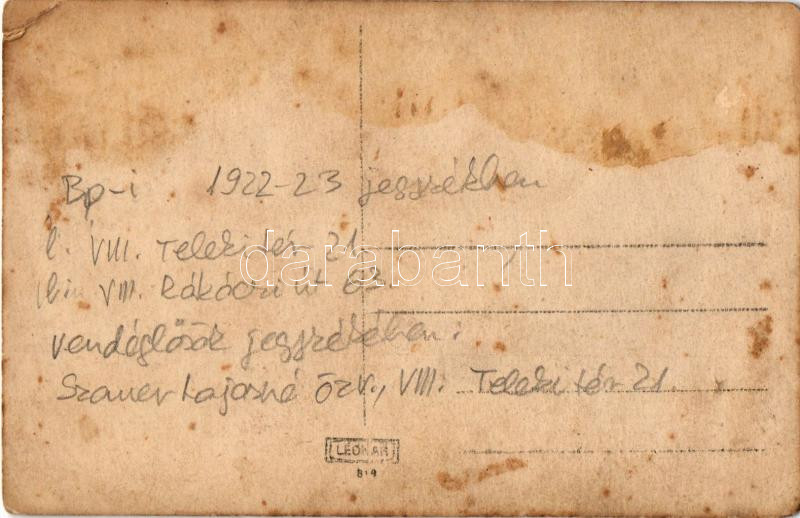 Bp-i 1922-23 jegyzékben
l. VIII. Teleki tér 21.
VIII. Rákóczi út 63.
vendéglősök jegyzékében:
Szauer Lajosné özv., VIII. Teleki tér 21.
darabanth
LEONAR